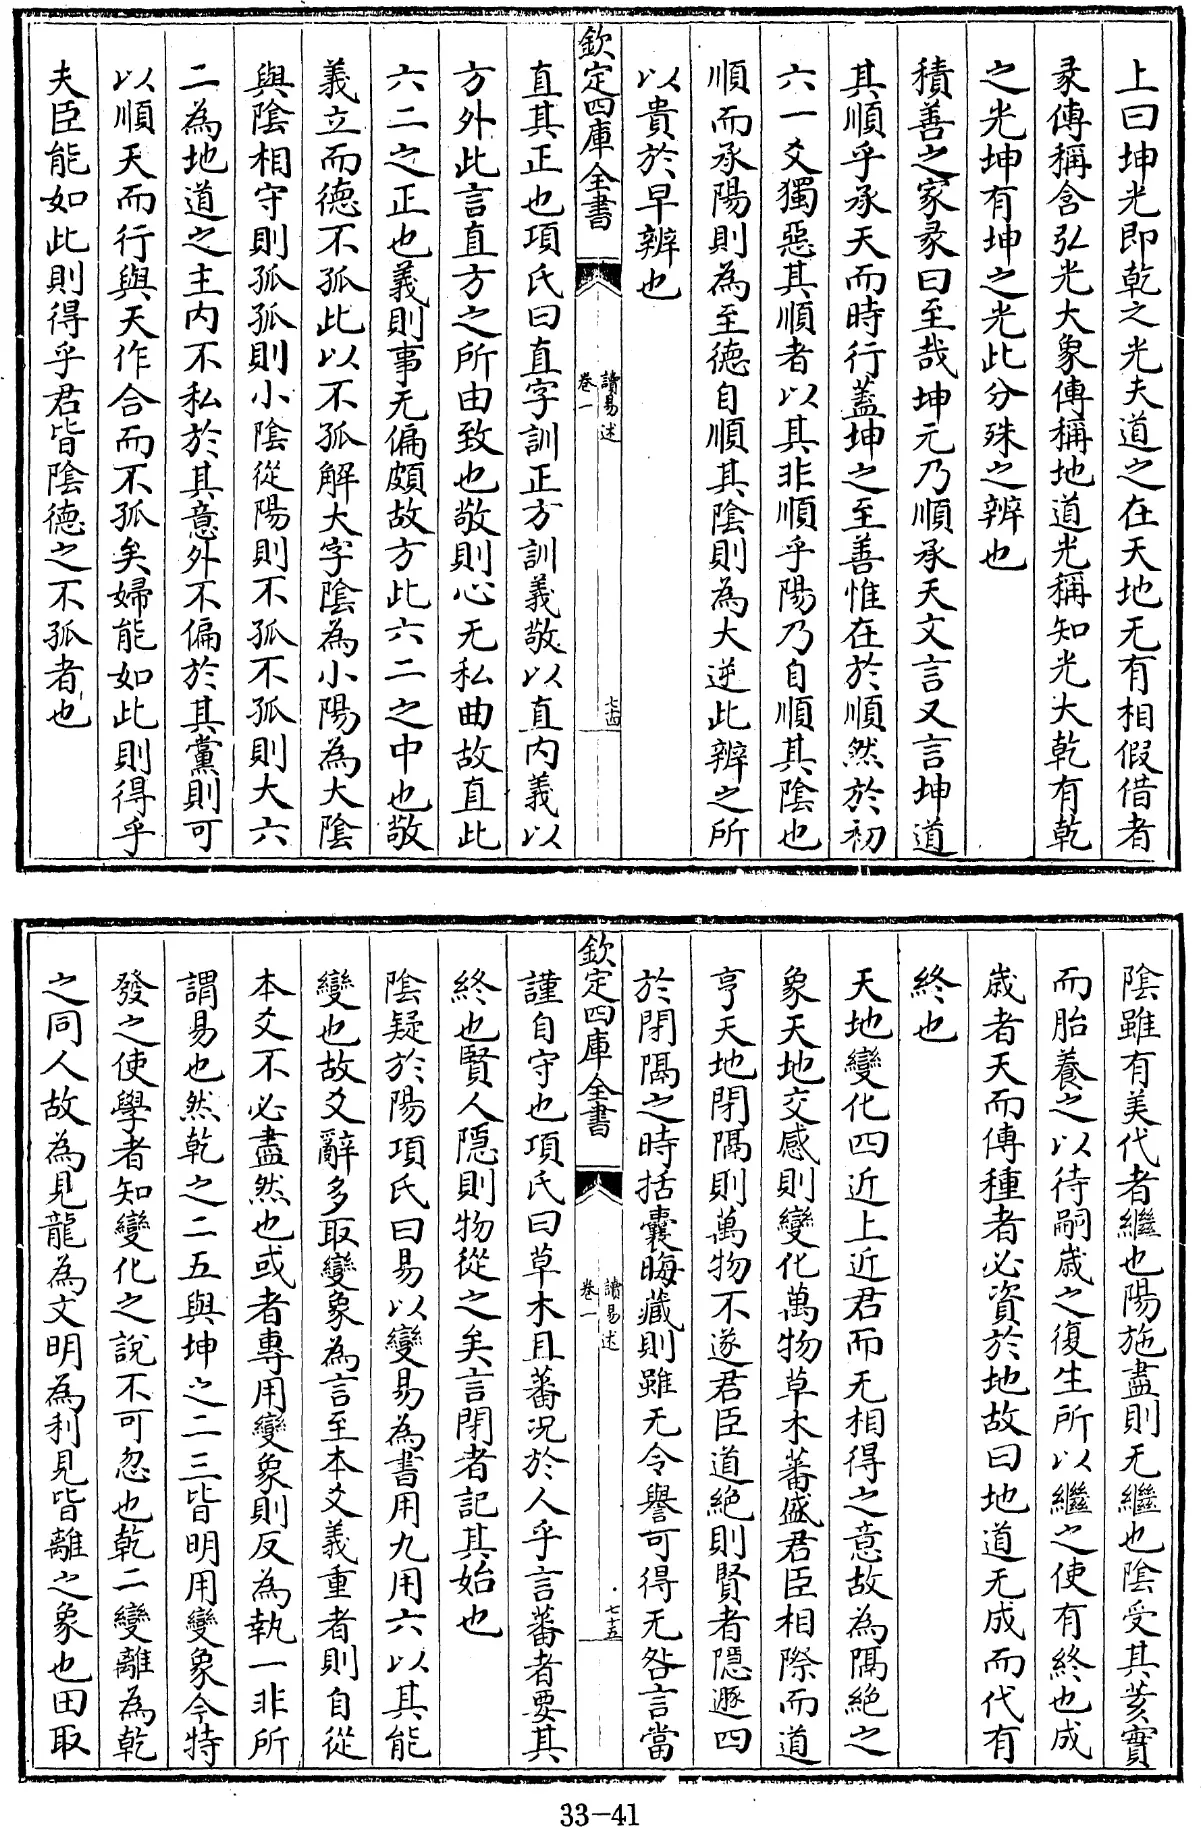 上曰坤光即乾之光夫道之在天地无有相假借者
彖傳稱含弘光大象傳稱地道光稱知光大乾有乾
之光坤有坤之光此分殊之辨也
積善之家彖曰至哉坤元乃順承天文言又言坤道
其順乎承天而時行蓋坤之至善惟在於順然於初
六一爻獨惡其順者以其非順乎陽乃自順其陰也
順而承陽則為至德自順其陰則為大逆此辨之所
以貴於早辨也
欽定四庫全書
讀易述
卷一
七十四
直其正也項氏曰直字訓正方訓義敬以直内義以
方外此言直方之所由致也敬則心无私曲故直此
六二之正也義則事无偏頗故方此六二之中也敬
義立而德不孤此以不孤解大字陰為小陽為大陰
與陰相守則孤孤則小陰從陽則不孤不孤則大六
二為地道之主内不私於其意外不偏於其黨則可
以順天而行與天作合而不孤矣婦能如此則得乎
夫臣能如此則得乎君皆陰德之不孤者也
陰雖有美代者繼也陽施盡則无繼也陰受其荄實
而胎養之以待嗣歲之復生所以繼之使有終也成
歲者天而傳種者必資於地故曰地道无成而代有
終也
天地變化四近上近君而无相得之意故為隔絶之
象天地交感則變化萬物草木蕃盛君臣相際而道
亨天地閉隔則萬物不遂君臣道絶則賢者隱遯四
於閉隔之時括囊晦藏則雖无令譽可得无咎言當
欽定四庫全書
讀易述
卷一
七十五
謹自守也項氏曰草木且蕃况於人乎言蕃者要其
終也賢人隱則物從之矣言閉者記其始也
陰疑於陽項氏曰易以變易為書用九用六以其能
變也故爻辭多取變象為言至本爻義重者則自從
本爻不必盡然也或者專用變象則反為執一非所
謂易也然乾之二五與坤之二三皆明用變象今特
發之使學者知變化之說不可忽也乾二變離為乾
之同人故為見龍為文明為利見皆離之象也田取
33-41